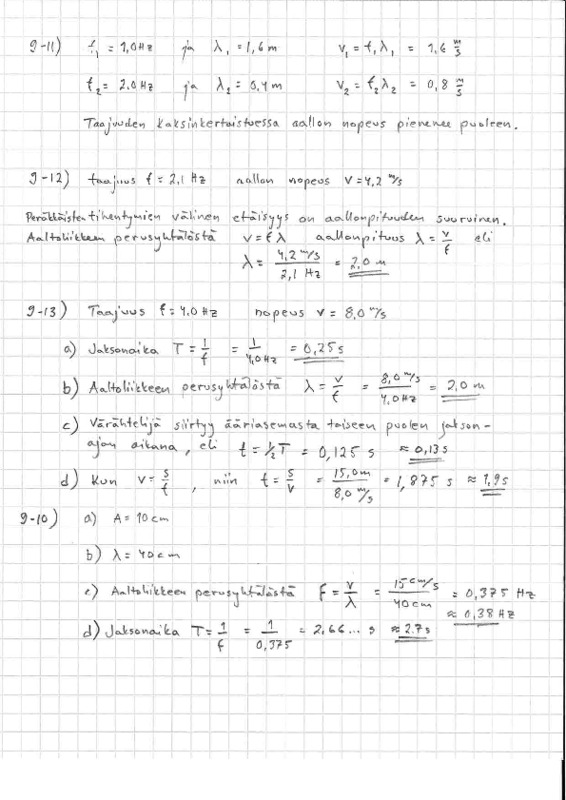 9-11) f₁ = 1,0 Hz ja λ₁ = 1,6 m v₁ = f₁λ₁ = 1,6 m/s
f₂ = 2,0 Hz ja λ₂ = 0,4 m v₂ = f₂λ₂ = 0,8 m/s
Taajuuden kaksinkertaistuessa aallon nopeus pienenee puoleen.
9-12) taajuus f = 2,1 Hz aallon nopeus v = 4,2 m/s
Peräkkäisten tihentymien välinen etäisyys on aallonpituuden suuruinen.
Aaltoliikkeen perusyhtälöstä v = fλ aallonpituus λ = v/f eli
λ = 4,2 m/s / 2,1 Hz = 2,0 m
9-13) Taajuus f = 4,0 Hz nopeus v = 8,0 m/s
a) Jaksonaika T = 1/f = 1/4,0 Hz = 0,25 s
b) Aaltoliikkeen perusyhtälöstä λ = v/f = 8,0 m/s / 4,0 Hz = 2,0 m
c) Värähtelijä siirtyy ääriasemasta toiseen puolen jakson-
ajan aikana, eli t = ½T = 0,125 s ≈ 0,13 s
d) Kun v = s/t, niin t = s/v = 15,0 m / 8,0 m/s = 1,875 s ≈ 1,9 s
9-10) a) A = 10 cm
b) λ = 40 cm
c) Aaltoliikkeen perusyhtälöstä f = v/λ = 15 cm/s / 40 cm = 0,375 Hz
≈ 0,38 Hz
d) Jaksonaika T = 1/f = 1/0,375 = 2,66... s ≈ 2,7 s